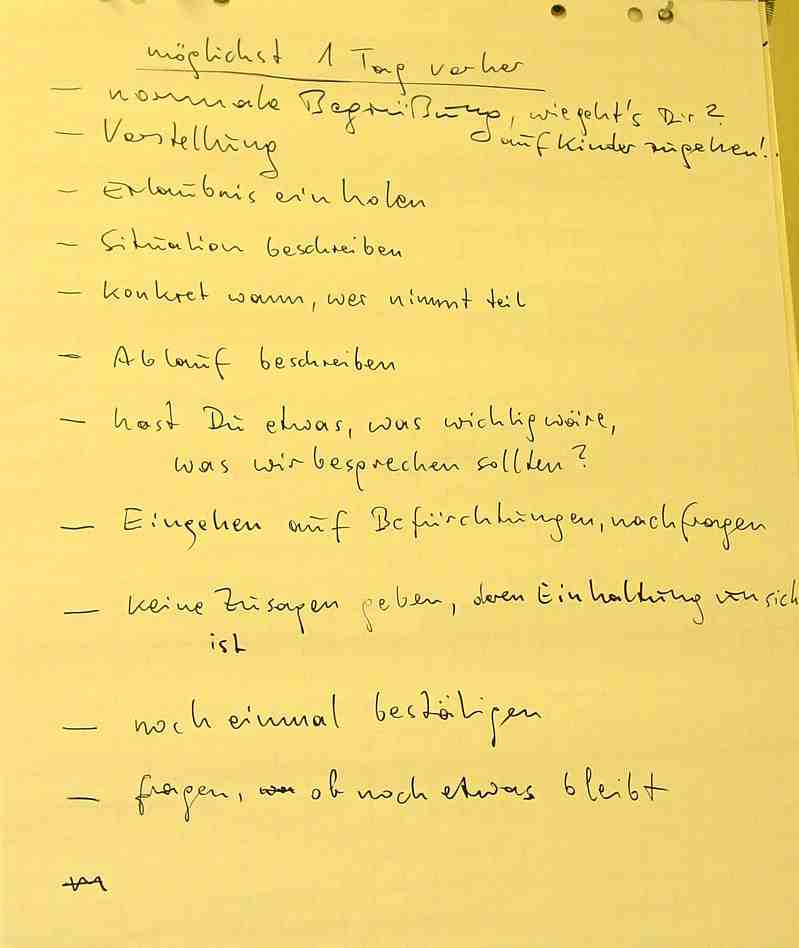 möglichst 1 Tag vorher
— normale Begrüßung, wie geht's Dir?
— Vorstellung auf Kinder zugehen!
— Erlaubnis einholen
— Situation beschreiben
— konkret wann, wer nimmt teil
— Ablauf beschreiben
— hast Du etwas, was wichtig wäre,
was wir besprechen sollten?
— Eingehen auf Befürchtungen, nachfragen
— keine Zusagen geben, deren Einhaltung unsich
ist
— noch einmal bestätigen
— fragen, ob noch etwas bleibt